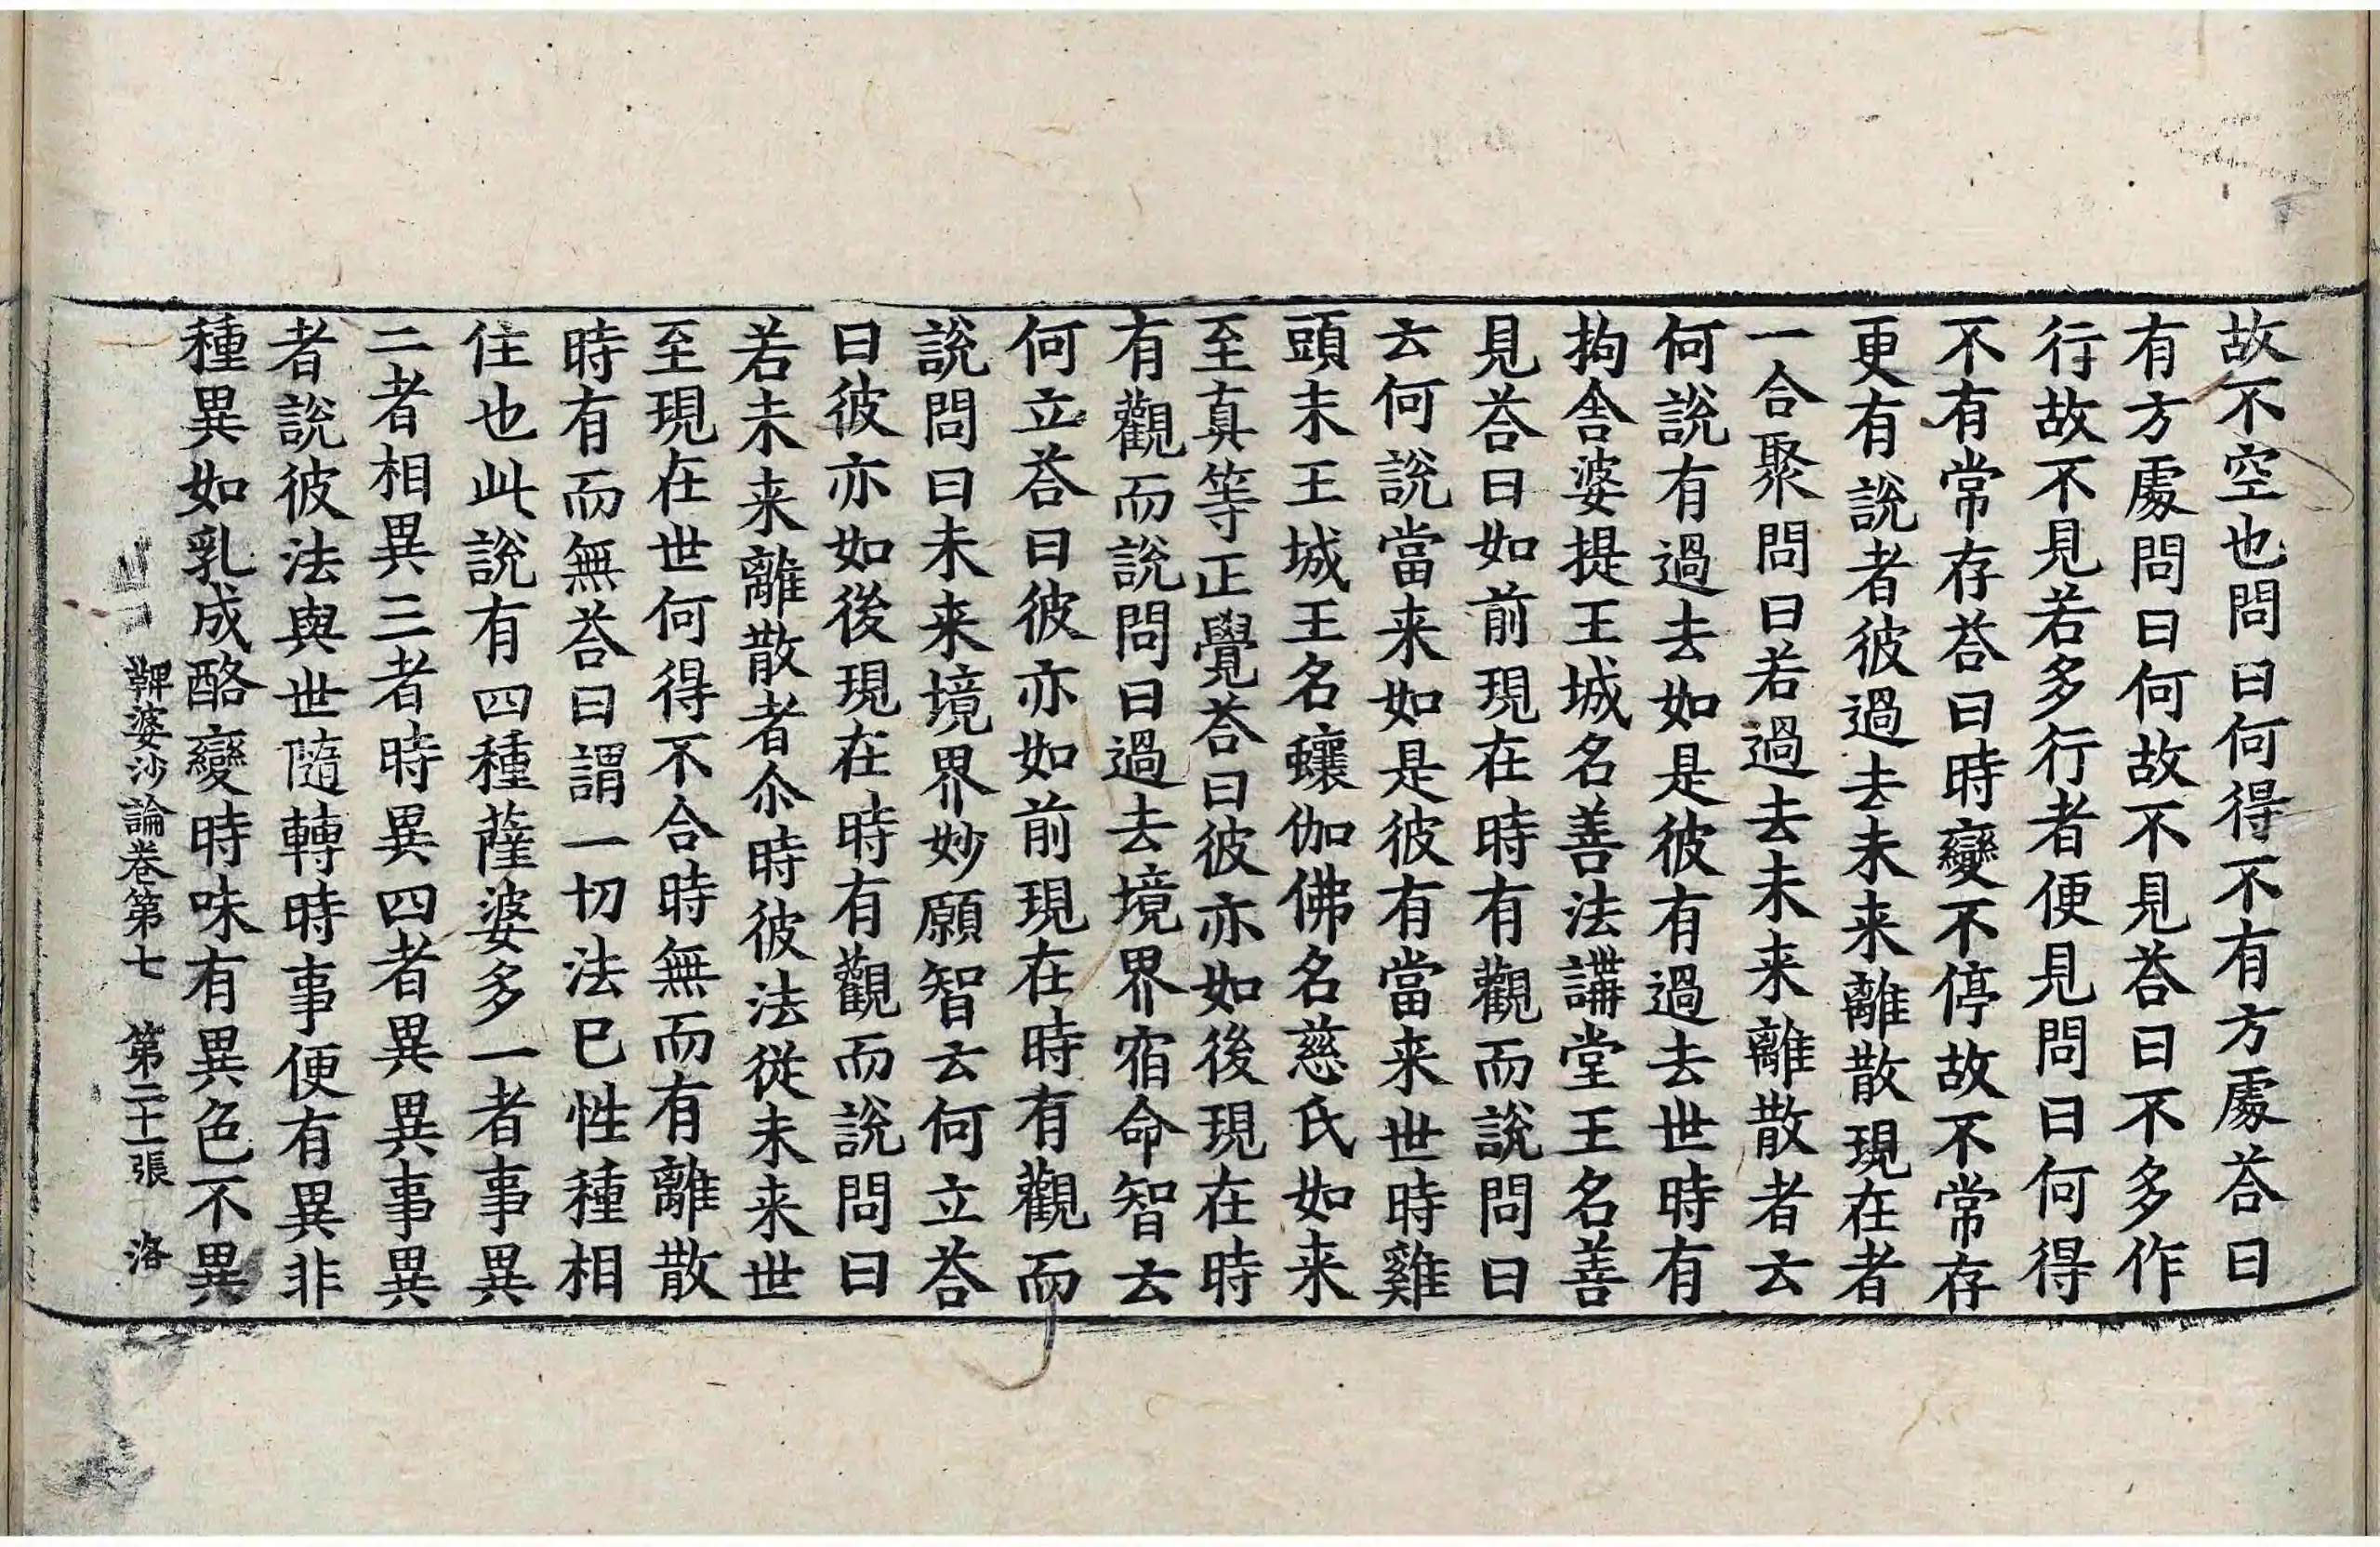 故不空也問曰何得不有方處荅曰
有方處問曰何故不見荅曰不多作
行故不見若多行者便見問曰何得
不有常存荅曰時變不停故不常存
更有說者彼過去未来離散現在者
一合聚問曰若過去未来離散者云
何說有過去如是彼有過去世時有
拘舍婆提王城名善法講堂王名善
見荅曰如前現在時有觀而說問曰
云何說當来如是彼有當来世時雞
頭末王城王名蠰伽佛名慈氏如来
至真等正覺荅曰彼亦如後現在時
有觀而說問曰過去境界宿命智云
何立荅曰彼亦如前現在時有觀而
說問曰未来境界妙願智云何立荅
曰彼亦如後現在時有觀而說問曰
若未来離散者尒時彼法從未来世
至現在世何得不合時無而有離散
時有而無荅曰謂一切法已性種相
住也此說有四種薩婆多一者事異
二者相異三者時異四者異異事異
者說彼法與世隨轉時事便有異非
種異如乳成酪變時味有異色不異
鞞婆沙論卷第七 第二十一張 洛